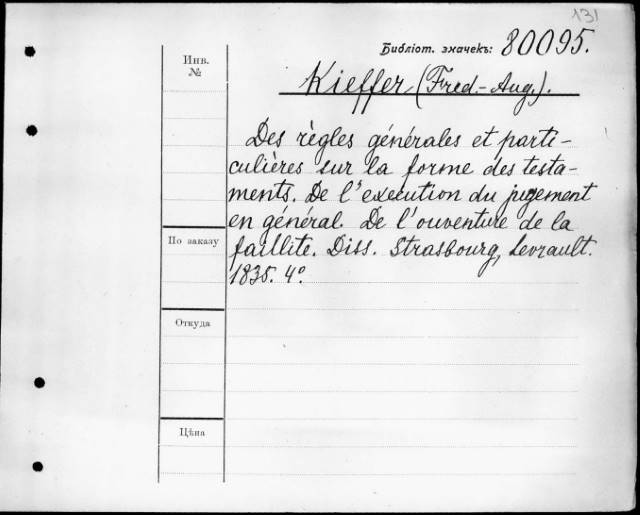 131
Библіот. значекъ: 80095.
Инв.
№
Kieffer (Fred.-Aug.).
Des règles générales et parti-
culières sur la forme des testa-
ments. De l'execution du jugement
en général. De l'ouventure de la
faillite. Diss. Strasbourg, Levrault.
1835. 4°.
По заказу
Откуда
Цѣна